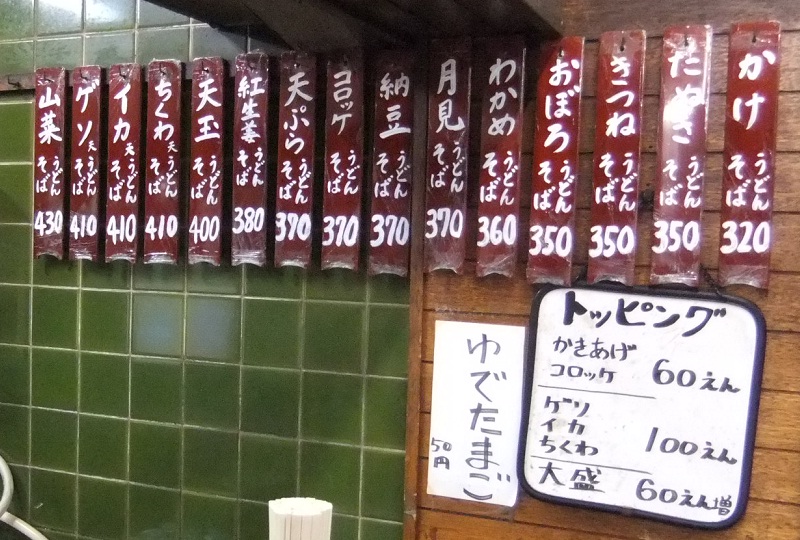 かけ うどん そば 320
たぬき うどん そば 350
きつね うどん そば 350
おぼろ うどん そば 350
わかめ うどん そば 360
月見 うどん そば 370
納豆 うどん そば 370
コロッケ うどん そば 370
天ぷら うどん そば 370
紅生姜 うどん そば 380
天玉 うどん そば 400
ちくわ天 うどん そば 410
イカ天 うどん そば 410
ゲソ天 うどん そば 410
山菜 うどん そば 430
トッピング
かきあげ
コロッケ 60えん
ゲソ
イカ
ちくわ 100えん
大盛 60えん増
ゆでたまご
50円